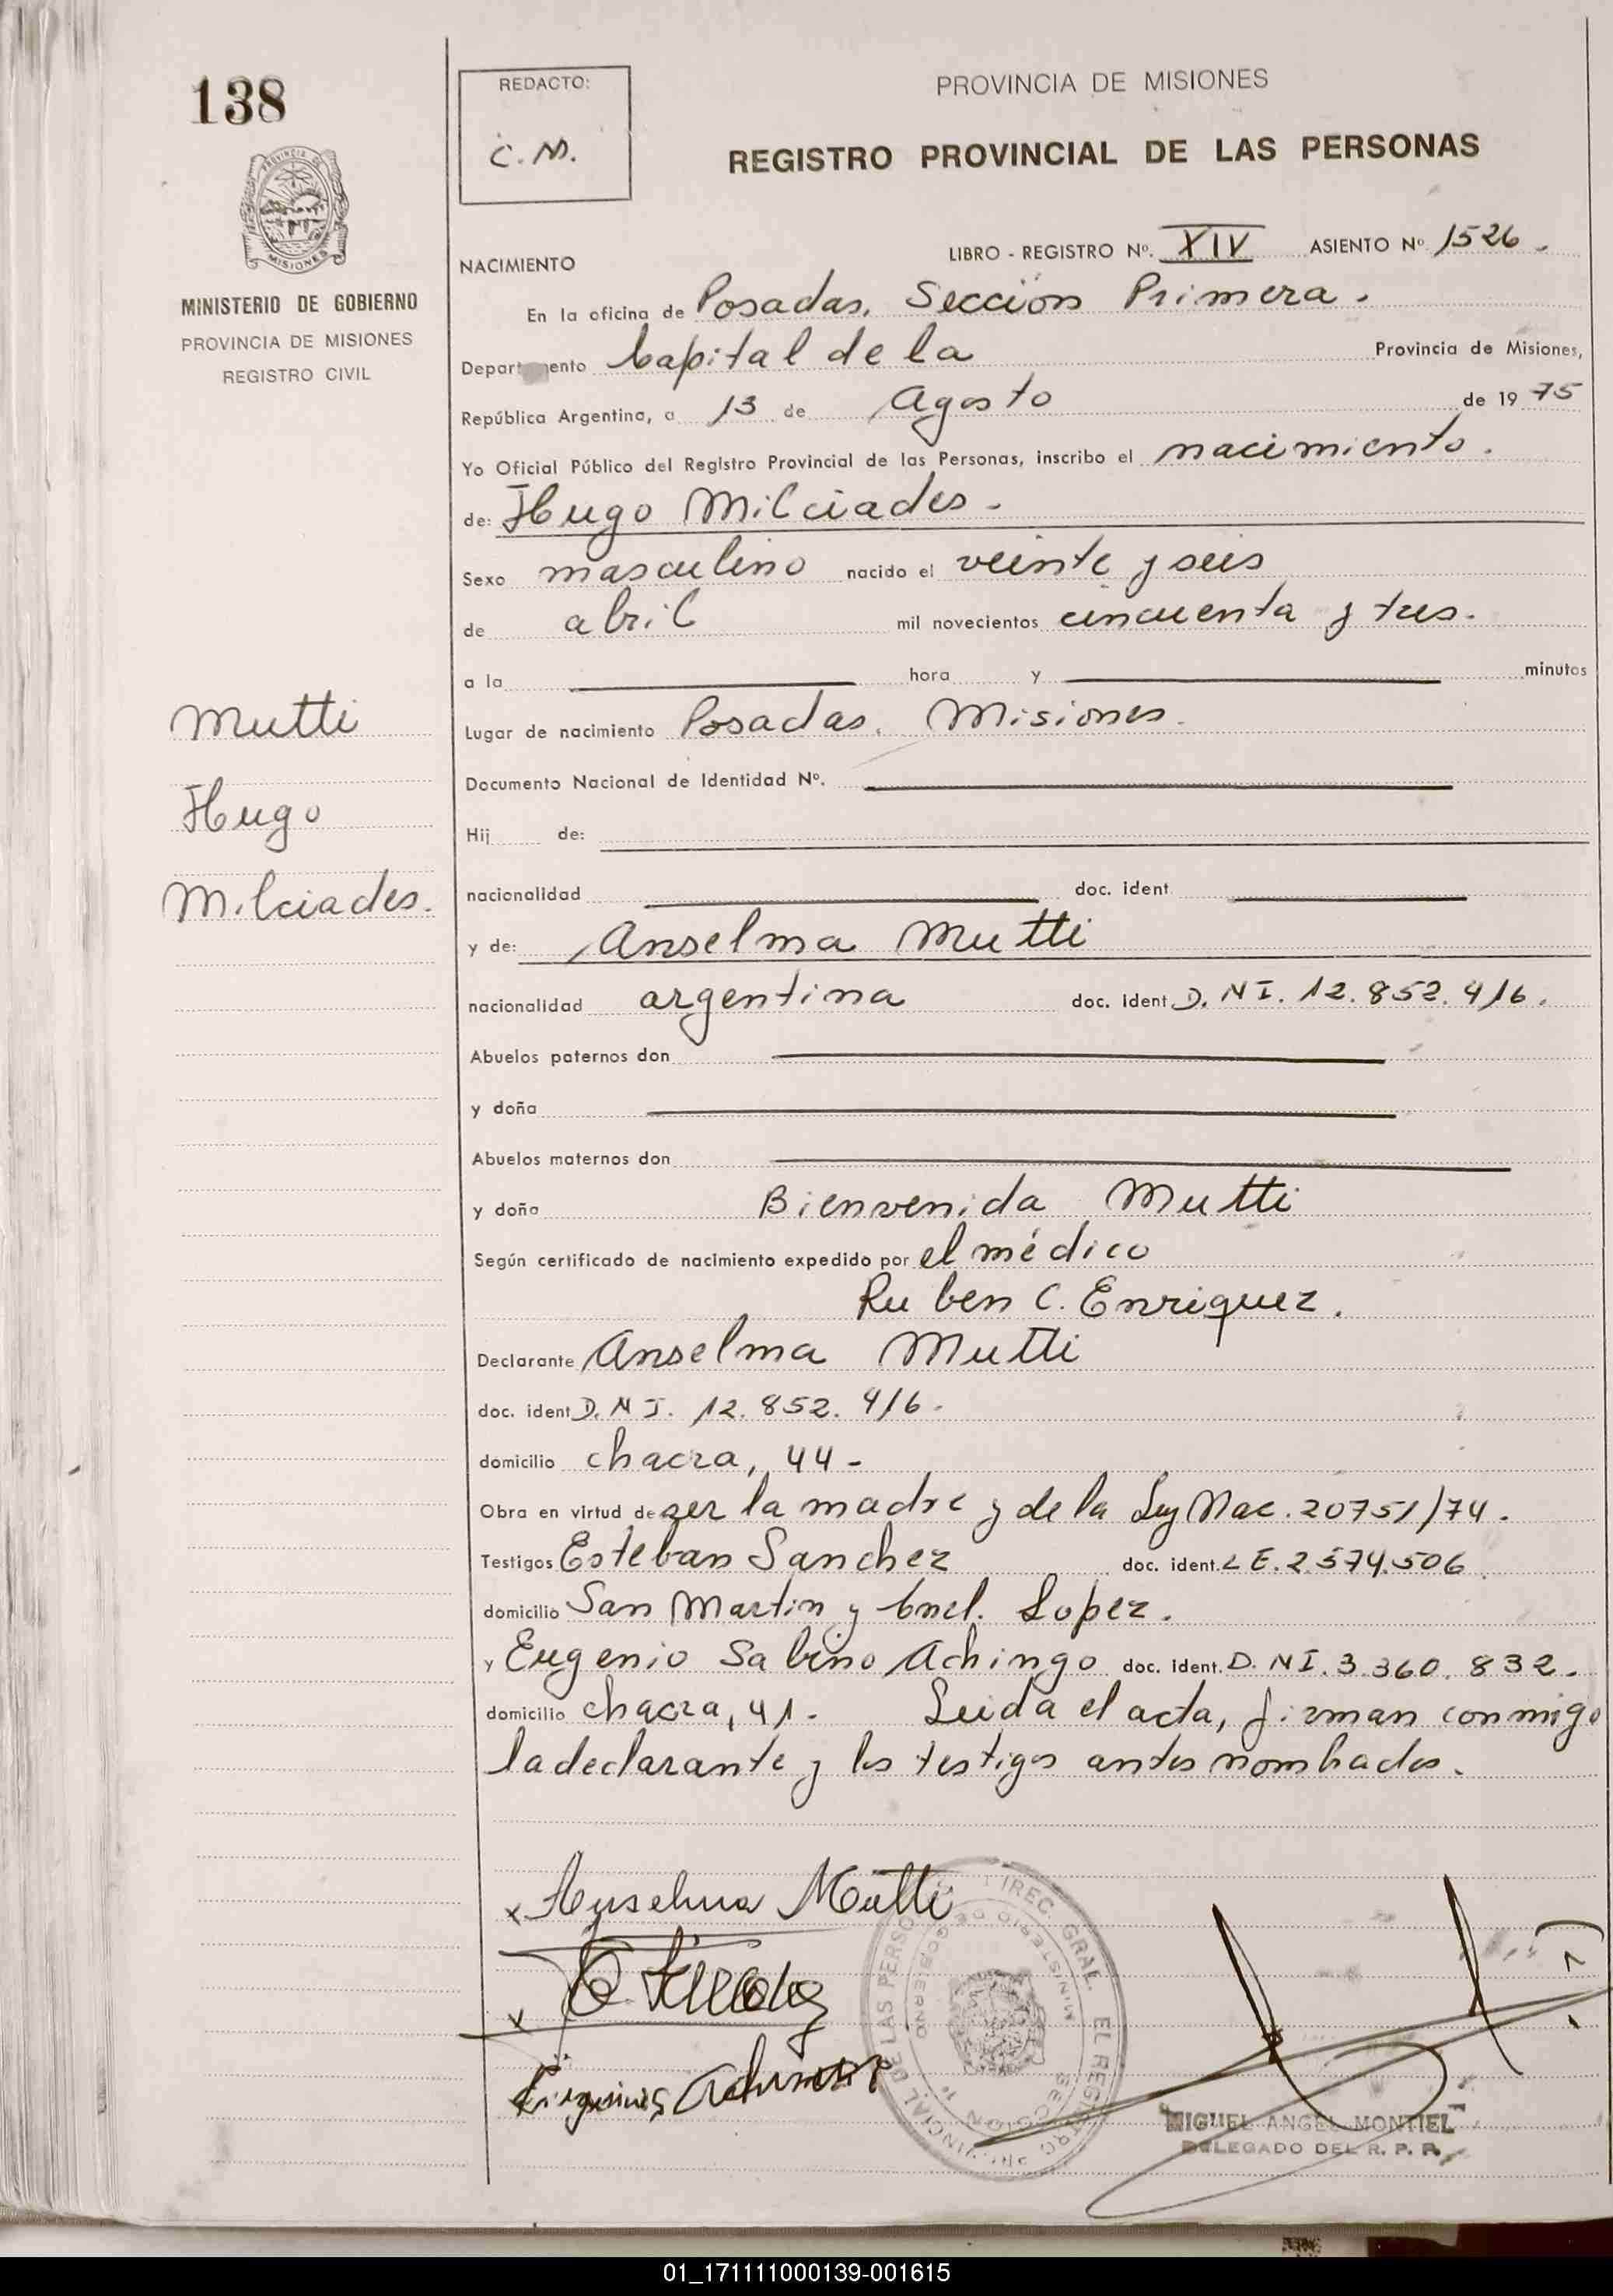 138
PROVINCIA DE
MISIONES
MINISTERIO DE GOBIERNO
PROVINCIA DE MISIONES
REGISTRO CIVIL
Mutti
Hugo
Milciades.
REDACTO:
C. M.
PROVINCIA DE MISIONES
REGISTRO PROVINCIAL DE LAS PERSONAS
LIBRO - REGISTRO Nº. XIV ASIENTO Nº 1526.
NACIMIENTO
En la oficina de Posadas, Sección Primera.
Depart ento Capital de la Provincia de Misiones,
República Argentina, a 13 de Agosto de 19 75
Yo Oficial Público del Registro Provincial de las Personas, inscribo el nacimiento.
de: Hugo Milciades.
Sexo masculino nacido el veinte y seis
de abril mil novecientos cincuenta y tres.
a la hora y minutos
Lugar de nacimiento Posadas, Misiones.
Documento Nacional de Identidad Nº.
Hij de:
nacionalidad doc. ident.
y de: Anselma Mutti
nacionalidad argentina doc. ident. D. N I. 12.852.416.
Abuelos paternos don
y doña
Abuelos maternos don
y doña Bienvenida Mutti
Según certificado de nacimiento expedido por el médico
Ruben C. Enriquez.
Declarante Anselma Mutti
doc. ident D. N I. 12.852.416.
domicilio chacra, 44-
Obra en virtud de ser la madre y de la Ley Nac. 20751/74.
Testigos Esteban Sanchez doc. ident. L E. 2.574.506
domicilio San Martin y Cnel. Lopez.
y Eugenio Sabino Achingo doc. ident. D. N I. 3.360.832.
domicilio chacra, 41. Leida el acta, firman conmigo
la declarante y los testigos antes nombrados.
x Anselma Mutti
x
DIREC. GRAL. EL REGISTRO PROVINCIAL DE LAS PERSONAS
MINISTERIO DE GOBIERNO
MIGUEL ANGEL MONTIEL
DELEGADO DEL R. P. P.
01_171111000139-001615